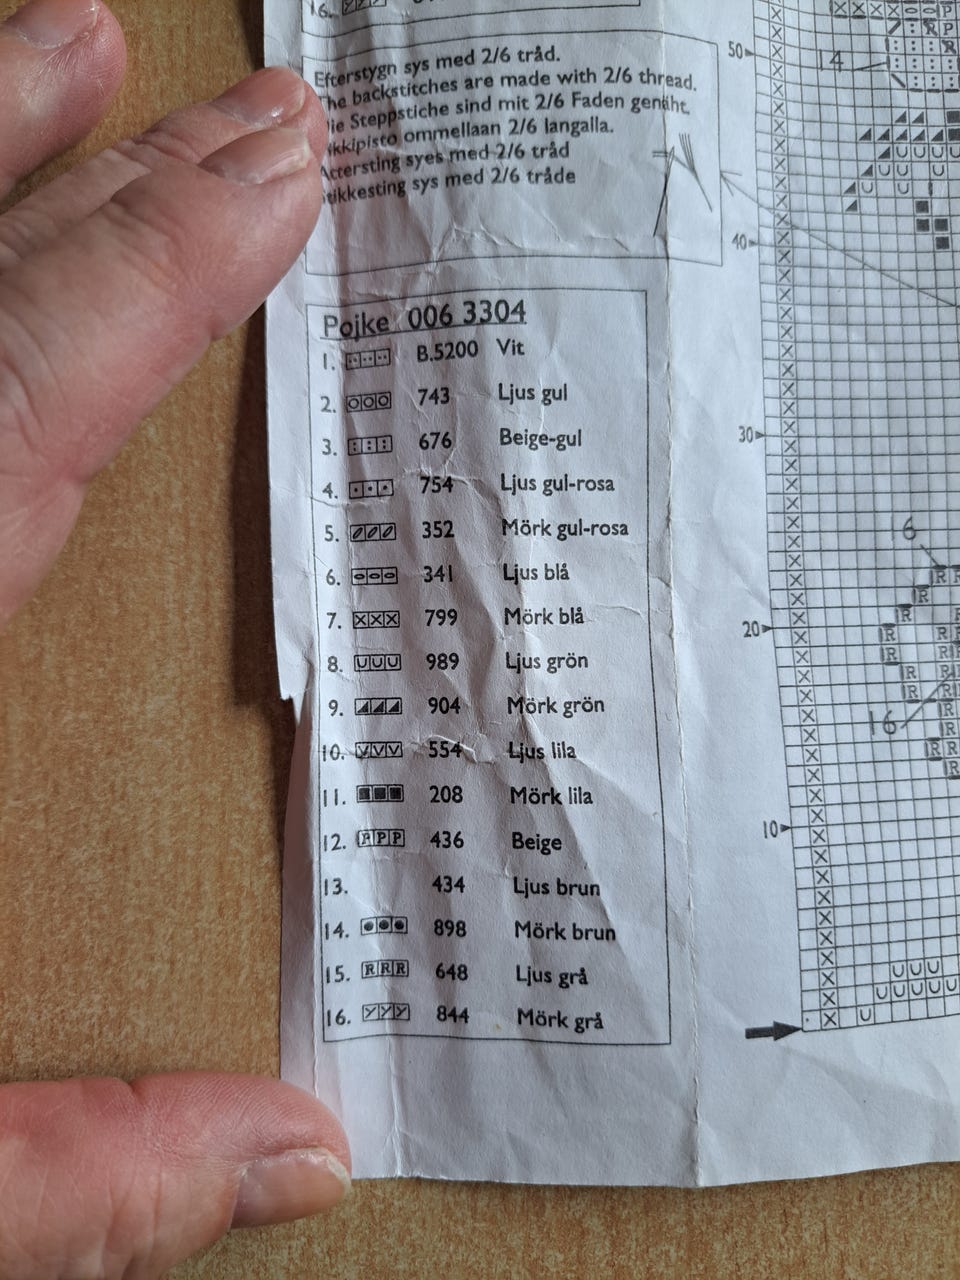 16.
Efterstygn sys med 2/6 tråd.
The backstitches are made with 2/6 thread.
Die Steppstiche sind mit 2/6 Faden genäht.
ommellaan 2/6 langalla.
syes med 2/6 tråd
sys med 2/6 tråde
Pojke 006 3304
1. B.5200 Vit
2. OOO 743 Ljus gul
3. 676 Beige-gul
4. 754 Ljus gul-rosa
5. 352 Mörk gul-rosa
6. 341 Ljus blå
7. XXX 799 Mörk blå
8. UUU 989 Ljus grön
9. 904 Mörk grön
10. VVV 554 Ljus lila
11. 208 Mörk lila
12. PPP 436 Beige
13. 434 Ljus brun
14. 898 Mörk brun
15. RRR 648 Ljus grå
16. YYY 844 Mörk grå
50
14
40
30
6
20
16
10